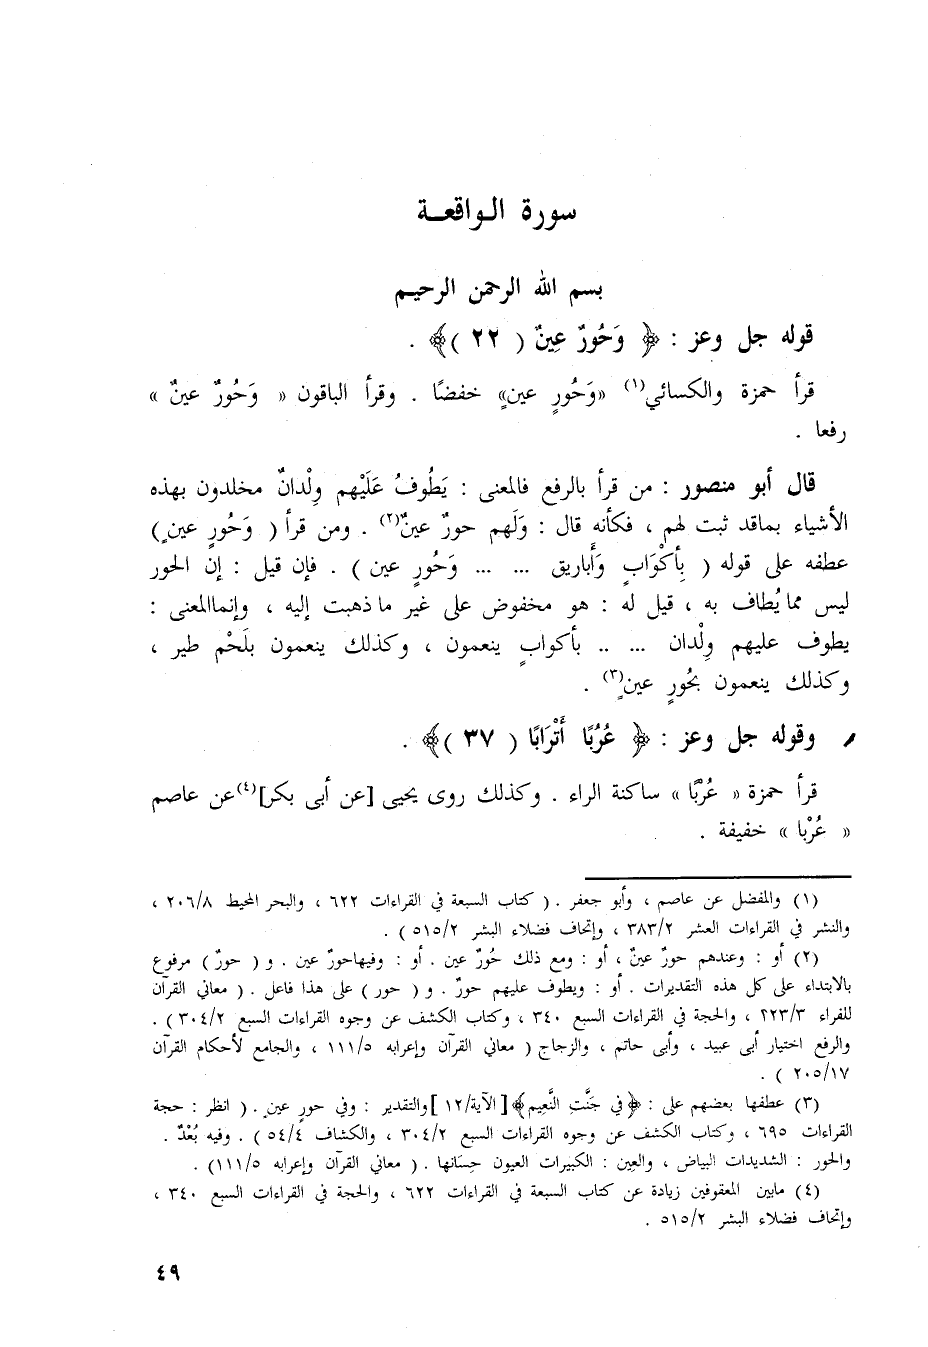 سورة الـواقعـة
بسم الله الرحمن الرحيم
قوله جل وعز : ﴿ وَحُورٌ عِينٌ ( ٢٢ )﴾ .
قرأ حمزة والكسائي(١) «وَحُورٍ عينٍ» خفضًا . وقرأ الباقون « وَحُورٌ عينٌ »
رفعا .
قال أبو منصور : من قرأ بالرفع فالمعنى : يَطُوفُ عَلَيْهم وِلْدانٌ مخلدون بهذه
الأشياء بماقد ثبت لهم ، فكأنه قال : وَلهم حورٌ عينٌ(٢) . ومن قرأ ( وَحُورٍ عينٍ )
عطفه على قوله ( بِأكْوَابٍ وَأَباريق ... ... وَحُورٍ عين ) . فإن قيل : إن الحور
ليس مما يُطاف به ، قيل له : هو مخفوض على غير ماذهبت إليه ، وإنماالمعنى :
يطوف عليهم وِلْدان ... .. بأكوابٍ ينعمون ، وكذلك ينعمون بلَحْم طير ،
وكذلك ينعمون بحُورٍ عينٍ(٣) .
وقوله جل وعز : ﴿ عُرُبًا أَتْرَابًا ( ٣٧ )﴾ .
قرأ حمزة « عُرْبًا » ساكنة الراء . وكذلك روى يحيى [عن أبى بكر](٤)عن عاصم
« عُرْبا » خفيفة .
(١) والمفضل عن عاصم ، وأبو جعفر . ( كتاب السبعة في القراءات ٦٢٢ ، والبحر المحيط ٢٠٦/٨ ،
والنشر في القراءات العشر ٣٨٣/٢ ، وإتحاف فضلاء البشر ٥١٥/٢ ) .
(٢) أو : وعندهم حورٌ عينٌ ، أو : ومع ذلك حُورٌ عين . أو : وفيهاحورٌ عين . و ( حورٌ ) مرفوع
بالابتداء على كل هذه التقديرات . أو : ويطوف عليهم حورٌ . و ( حور ) على هذا فاعل . ( معاني القرآن
للفراء ٢٢٣/٣ ، والحجة في القراءات السبع ٣٤٠ ، وكتاب الكشف عن وجوه القراءات السبع ٣٠٤/٢ ) .
والرفع اختيار أبى عبيد ، وأبى حاتم ، والزجاج ( معاني القرآن وإعرابه ١١١/٥ ، والجامع لأحكام القرآن
٢٠٥/١٧ ) .
(٣) عطفها بعضهم على : ﴿في جَنَّتِ النَّعِيم﴾[الآية/١٢ ]والتقدير : وفي حورٍ عينٍ . ( انظر : حجة
القراءات ٦٩٥ ، وكتاب الكشف عن وجوه القراءات السبع ٣٠٤/٢ ، والكشاف ٥٤/٤ ) . وفيه بُعْدٌ .
والحور : الشديدات البياض ، والعِين : الكبيرات العيون حِسَانها . ( معاني القرآن وإعرابه ١١١/٥) .
(٤) مابين المعقوفين زيادة عن كتاب السبعة في القراءات ٦٢٢ ، والحجة في القراءات السبع ٣٤٠ ،
وإتحاف فضلاء البشر ٥١٥/٢ .
٤٩